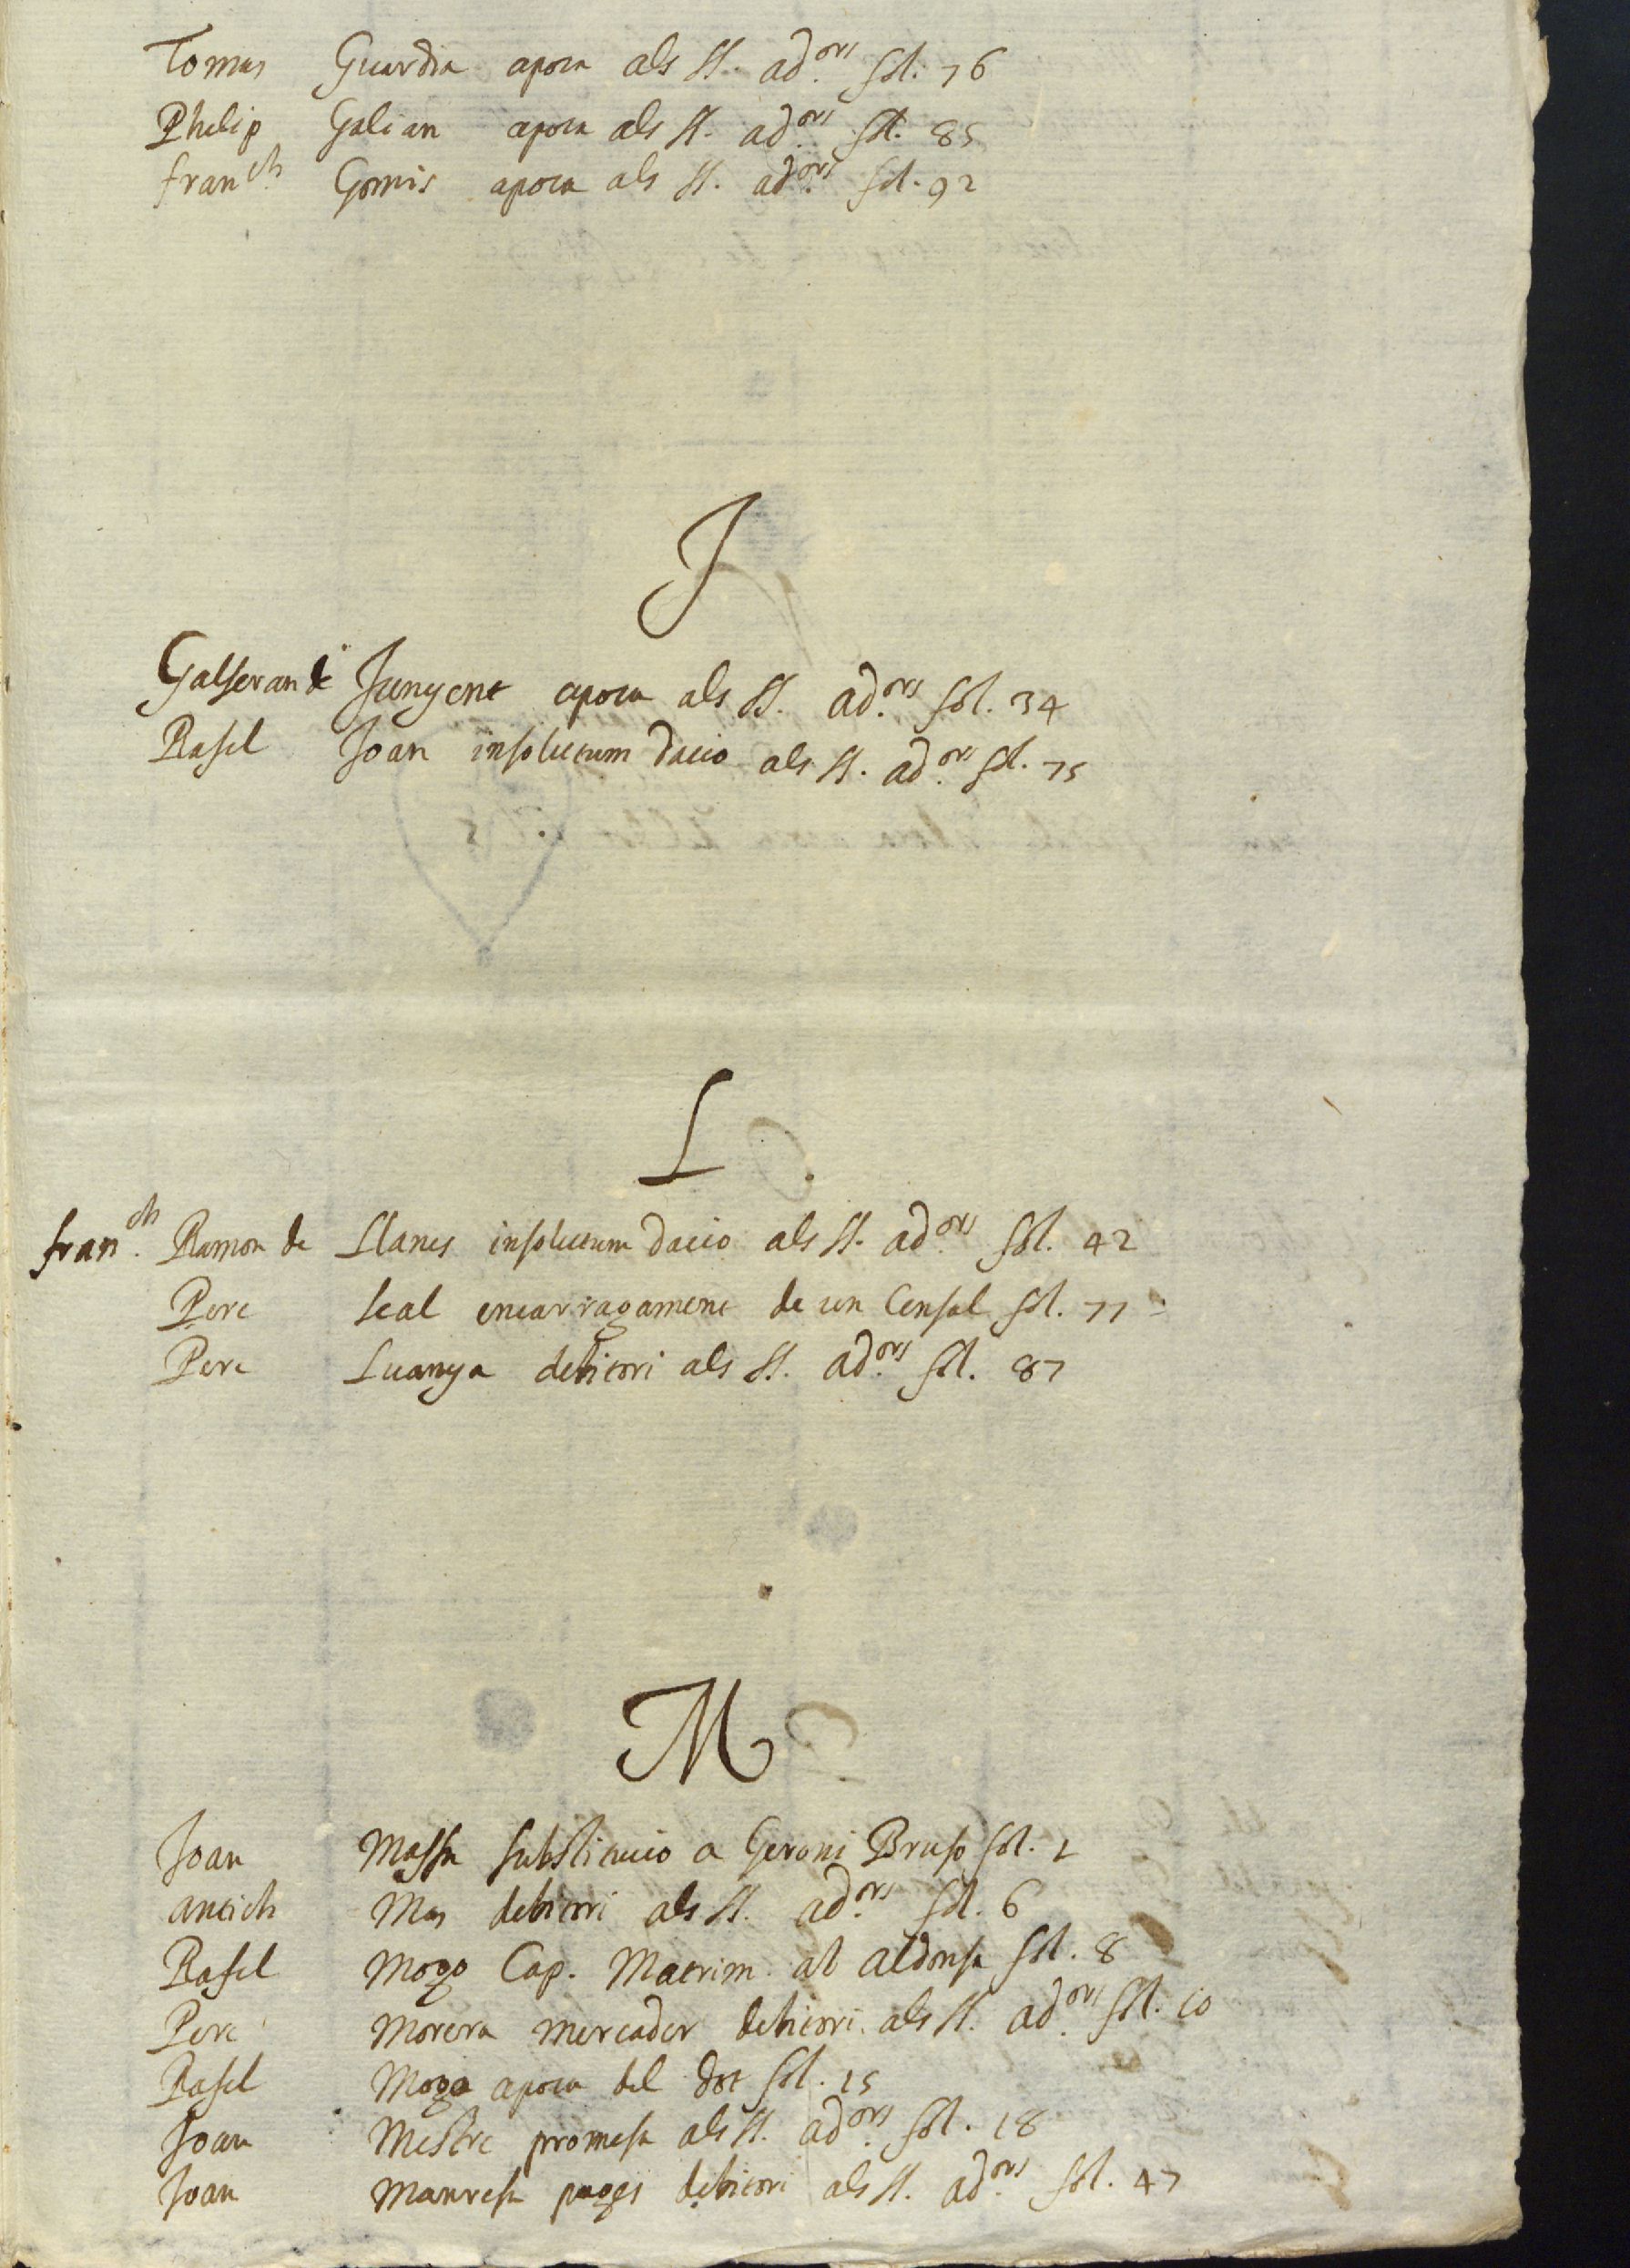 Tomas Guardia apoca als SS. ad.ors fol. 76
Phelip Galian apoca als SS. ad.ors fol. 85
franch. Gomis apoca als SS. ad.ors fol. 92
J
Galseran de Junyent apoca als SS. ad.ors fol. 34
Rafel Joan insolutum dacio als SS. ad.ors fol. 75
L
fran.ch Ramon de Llanes insolutum dacio als SS. ad.ors fol. 42
Pere leal encarragament de un Censal fol. 77
Pere Luanya debitori als SS. ad.ors fol. 87
M
Joan Massa substitucio a Geroni Bruso fol. 1
antich Mas debitori als SS. ad.ors fol. 6
Rafel Mogo Cap. Matrim. ab aldonsa fol. 8
Pere Morera mercader debitori als SS. ad.ors fol. 10
Rafel Moga apoca del dot fol. 15
Joan Mestre promesa als SS. ad.ors fol. 18
Joan Manresa pages debitori als SS. ad.ors fol. 47